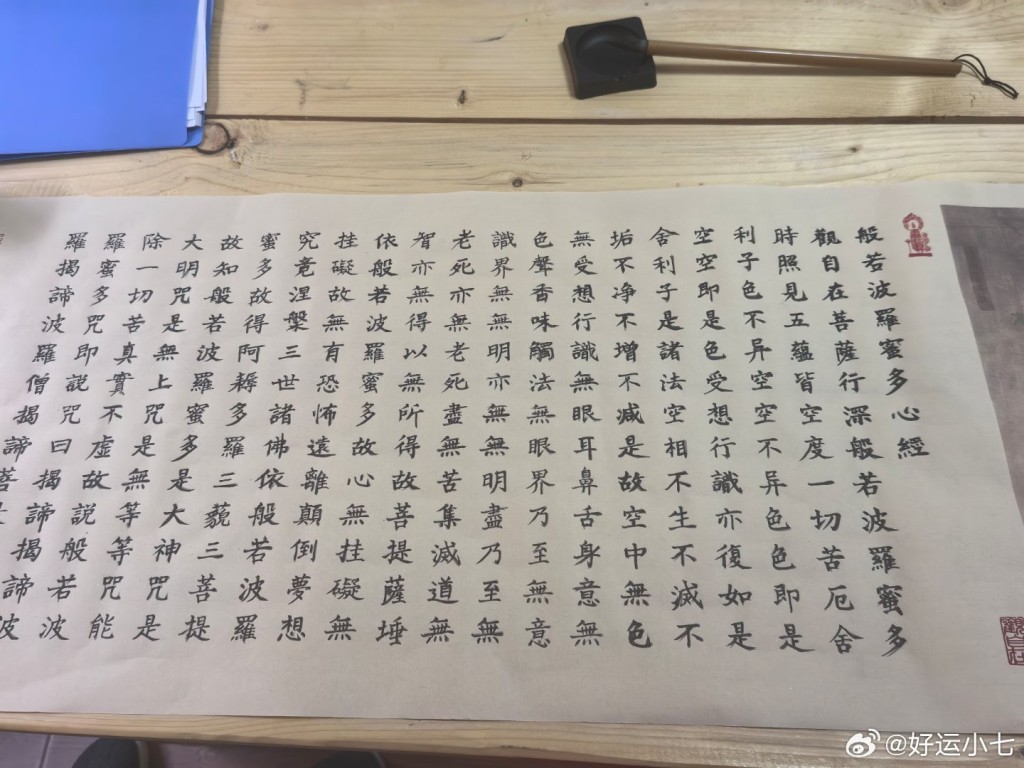 般若波羅蜜多心經
觀自在菩薩行深般若波羅蜜多
時照見五蘊皆空度一切苦厄舍
利子色不异空空不异色色即是
空空即是色受想行識亦復如是
舍利子是諸法空相不生不滅不
垢不净不增不減是故空中無色
無受想行識無眼耳鼻舌身意無
色聲香味觸法無眼界乃至無意
識界無無明亦無無明盡乃至無
老死亦無老死盡無苦集滅道無
智亦無得以無所得故菩提薩埵
依般若波羅蜜多故心無挂礙無
挂礙故無有恐怖遠離顛倒夢想
究竟涅槃三世諸佛依般若波羅
蜜多故得阿耨多羅三藐三菩提
故知般若波羅蜜多是大神咒是
大明咒是無上咒是無等等咒能
除一切苦真實不虛故説般若波
羅蜜多咒即説咒曰揭諦揭諦波
羅揭諦波羅僧揭諦菩
@好运小七